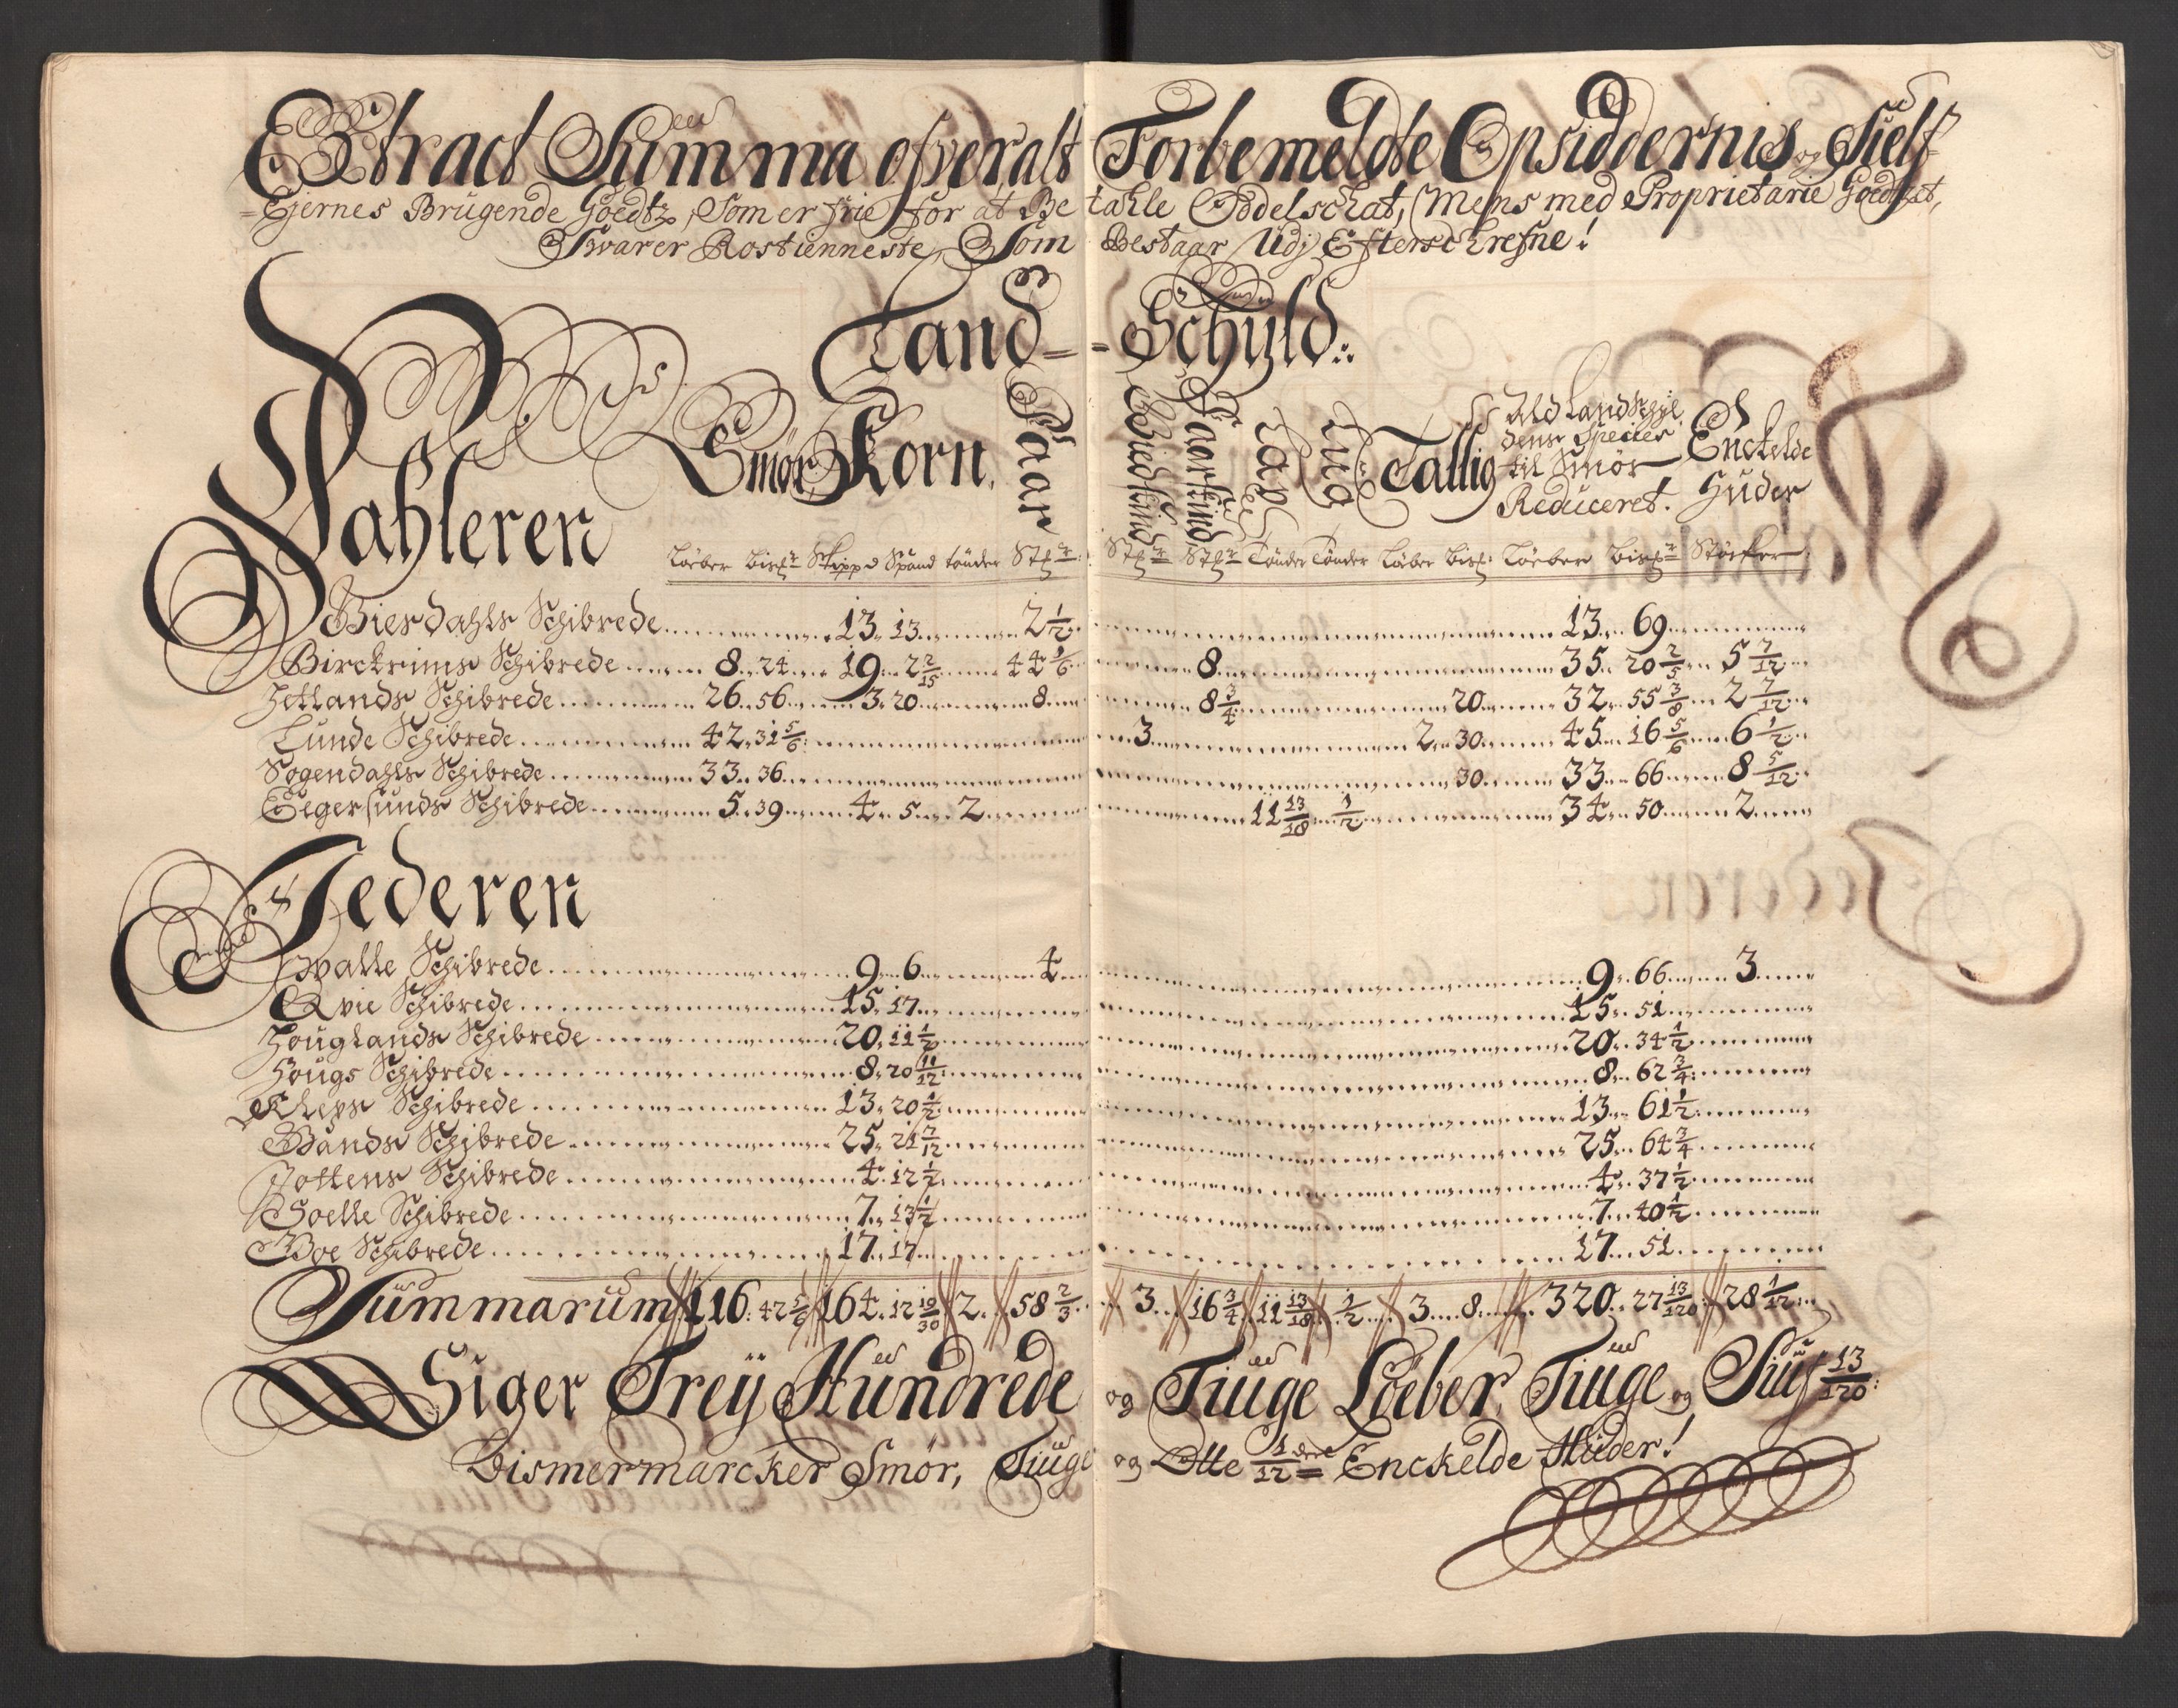 Extract Summa ofver alt Forbemeldte Opsiddernis og Sielf
=Ejernes Brugende Goedtz, Som er frie for at Betahle Oddelschat, Mens med Proprietarie Goedtzet,
Svarer Rostienneste, Som Bestaar Udj Efterschrefne!
Land=-Schyld:.
Dahleren Smör, Korn, Faar Giedskind Faarskind Lax Tallig Ald Landschyldens Species til Smör Reduceret. Enckelde Huder
Löeber Bisf Skippd Spand tönder Stchr Stchr Stchr Tönder Tönder Löber Bisf. Löeber Bisf Störker
Bierdahls Schibrede 13. 13. 2 1/2 13. 69
Birckrims Schibrede 8. 24. 19. 2 2/15 44 1/6 8. 35. 20 2/5 5 7/12
Hetlands Schibrede 26. 56. 3. 20. 8. 8 3/4 20. 32. 55 3/8 2 7/12
Lunde Schibrede 42. 31 5/6 3. 2. 30. 45. 16 5/6 6 1/2
Sogendahls Schibrede 33. 36. 30. 33. 66. 8 5/12
Eigersunds Schibrede 5. 39. 4. 5. 2. 11 13/18 1/2 34. 50. 2.
Jederen
Hvalle Schibrede 9. 6. 4. 9. 66. 3.
Qvie Schibrede 15. 17. 15. 51.
Houglands Schibrede 20. 11 1/2 20. 34 1/2
Hougs Schibrede 8. 20 11/12 8. 62 3/4
Kleps Schibrede 13. 20 1/2 13. 61 1/2
Bånds Schibrede 25. 21 7/12 25. 64 3/4
Jottens Schibrede 4. 12 1/2 4. 37 1/2
Soelle Schibrede 7. 13 1/2 7. 40 1/2
Boe Schibrede 17. 17. 17. 51.
Summarum 116. 42 5/6 164. 12 19/30 2. 58 2/3 3. 16 3/4 11 13/18 1/2 3. 8. 320. 27 13/120 28 1/12
Siger Treÿ Hundrede og Tiuge Löeber, Tiuge og Siuf 13/120:
Bismermarcker Smör, Tiuge og Otte 1/12 Enckelde Huder!